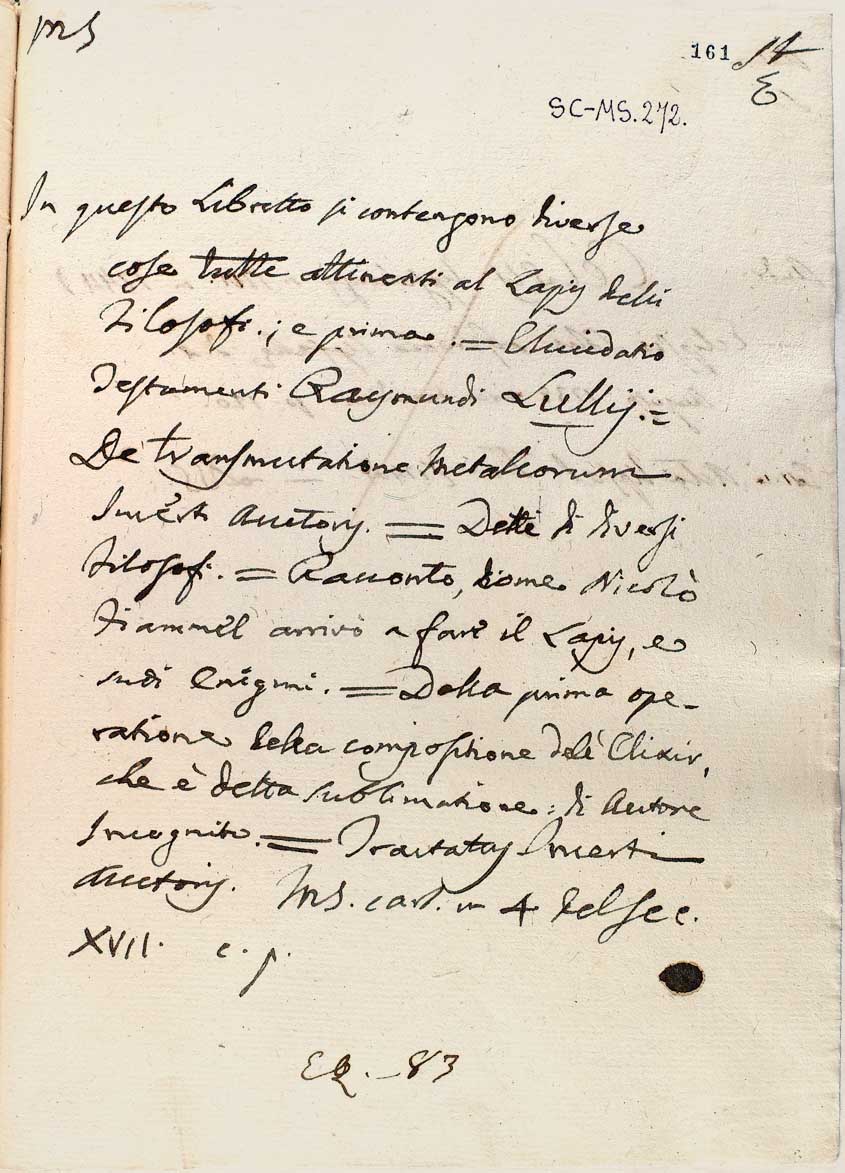 MS
161
14
E
SC-MS.272.
In questo Libretto si contengono diverse
cose tutte attinenti al Lapis delli
Filosofi.; e prima. = Elucidatio
Testamenti Raymundi Lullij. =
De transmutatione metallorum
Incerti Auctoris. = Detti di diversi
Filosofi. = Racconto, come Nicolò
Fiammel arrivò a fare il Lapis, e
suoi Enigmi. = Della prima ope-
ratione della compositione dell' Elixir,
che è detta sublimatione: di Autore
Incognito. = Tractatus Incerti
Auctoris. MS. cart. in 4 del sec.
XVII. c. p.
83